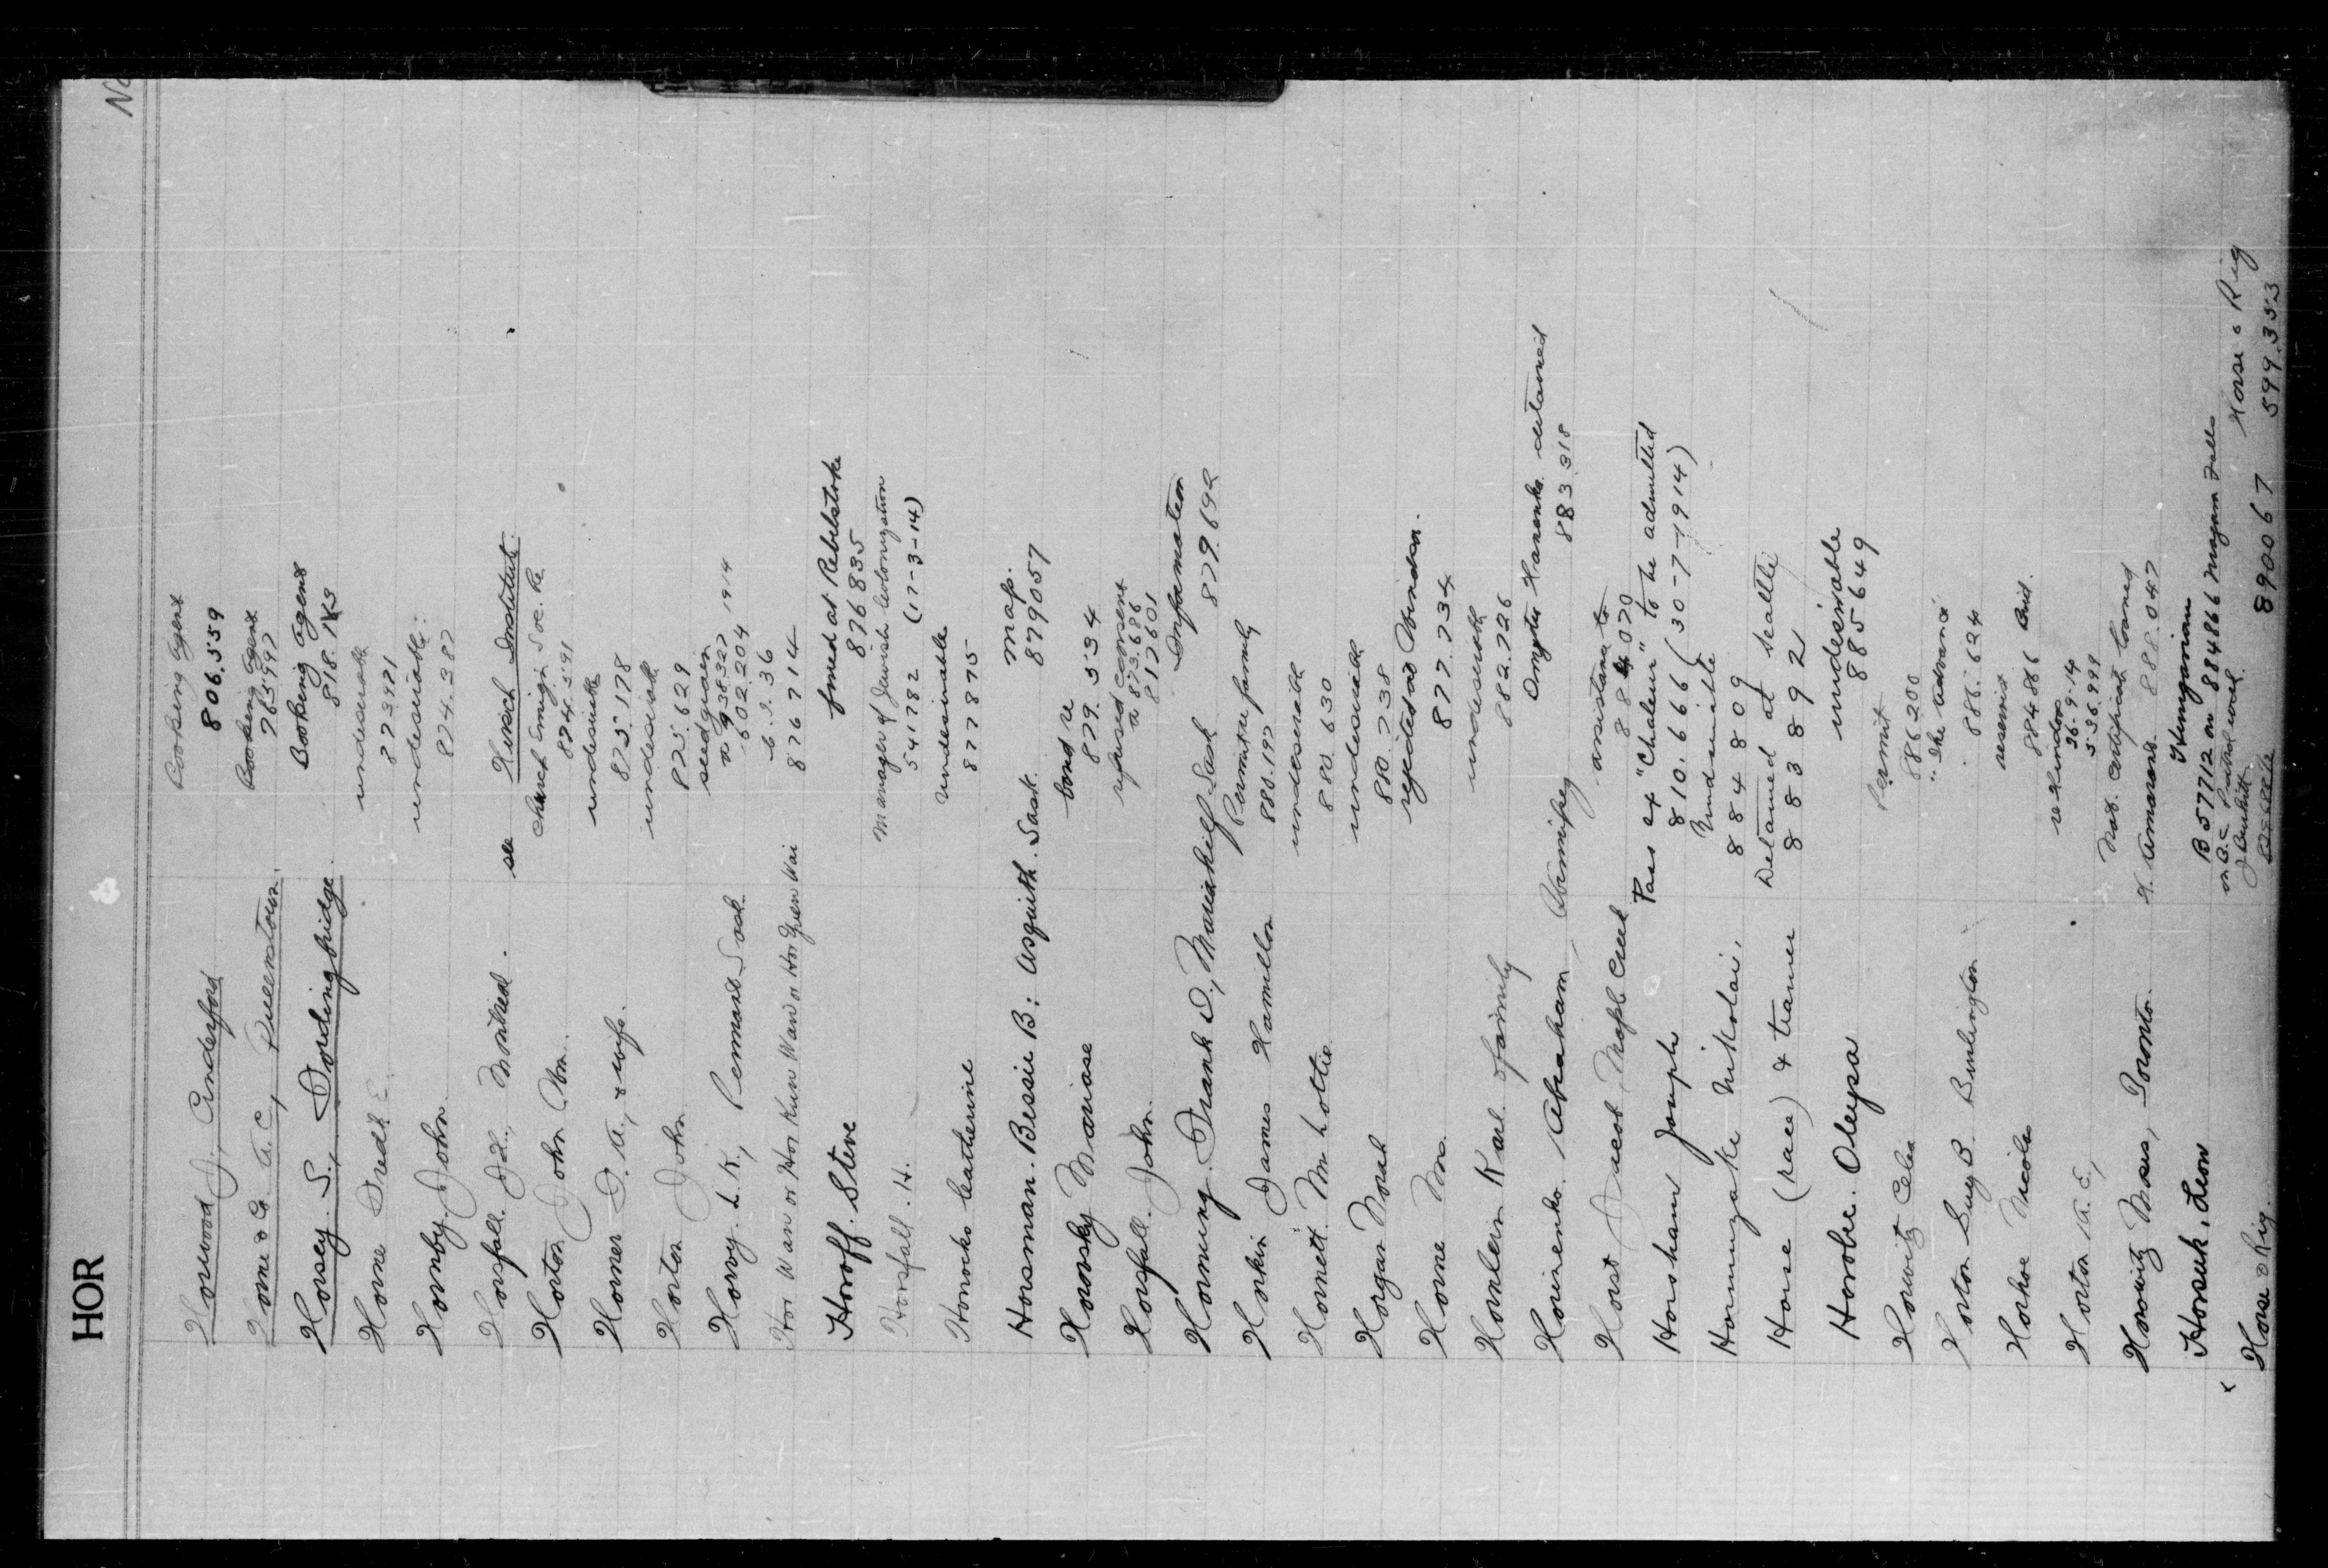 HOR
No
Horwood J, Cinderford
Booking Agent
806.559
Horne & Co A. C., Queenstown.
Booking Agent
765992
Horsey. S., Fordingbridge.
Booking Agent
818.
Horne Fredk E.
undesirable
873971
Hornby. John.
undesirable.
874.387
Horsfall. J. L., Montreal.
see Hirsch Institute.
Horton John Wm.
Church Emign Soc. Re
874.591
Horner D. A., & wife.
undesirable
875.178
Horton John
undesirable
875.629
Horvy. L. K., Pennant Sask.
seed grain
938322 1914
602.204
Hor Wan or Hor Kuw Wan or Hor Guen Wai
6.2.36
876714
Horoff. Steve
fined at Rebelstoke
876835
Horsfall. H.
Manager of Jewish Colonization
541782 (17-3-14)
Horrocks Catherine
undesirable
877875
Horsman. Bessie B: Asquith. Sask.
map.
879057
Horovsky Mariase
bond re
879.534
Horsfall. John.
refused consent
a 873.686
817601
Hornung. Frank D., Sask
Information
879.692
Horkin James Hamilton
Permit re family
880.197
Hornett. Mr Lottie
undesirable
880.630
Horgan Norah
undesirable
880.738
Horne M.
rejected at Windsor.
877.734
Hornlein Karl & family
undesirable
882.726
Horinenko. Abraham, Winnipeg
Dmytr Harenko detained
883.318
Horst Jacob, Maple Creek
assistance to
884070
Horsham Joseph
Pass ex "Chaleur" to be admitted
810.666 (30-7-1914)
Hormuzake Nikolai,
Undesirable
884809
Horse (race) & trainer
Detained at Seattle
883892
Horobec. Oleysa
undesirable
885649
Horowitz Celia
Permit
886200
Horton Guy B. Burlington
"The Advance"
886.624
Horhoe Nicolas
reservist
884866
Horton A. E.,
re Hindoos
26.9.14
536999
Horowitz Moses, Toronto.
Nat. certificate loaned
H. Amaron. 888.047
Horseuk, Leon
Hungarian
B 57712 on 884866 Niagara Falls
on B.C. Patrol work
Horse & Rig.
890067
Horse & Rig
599353